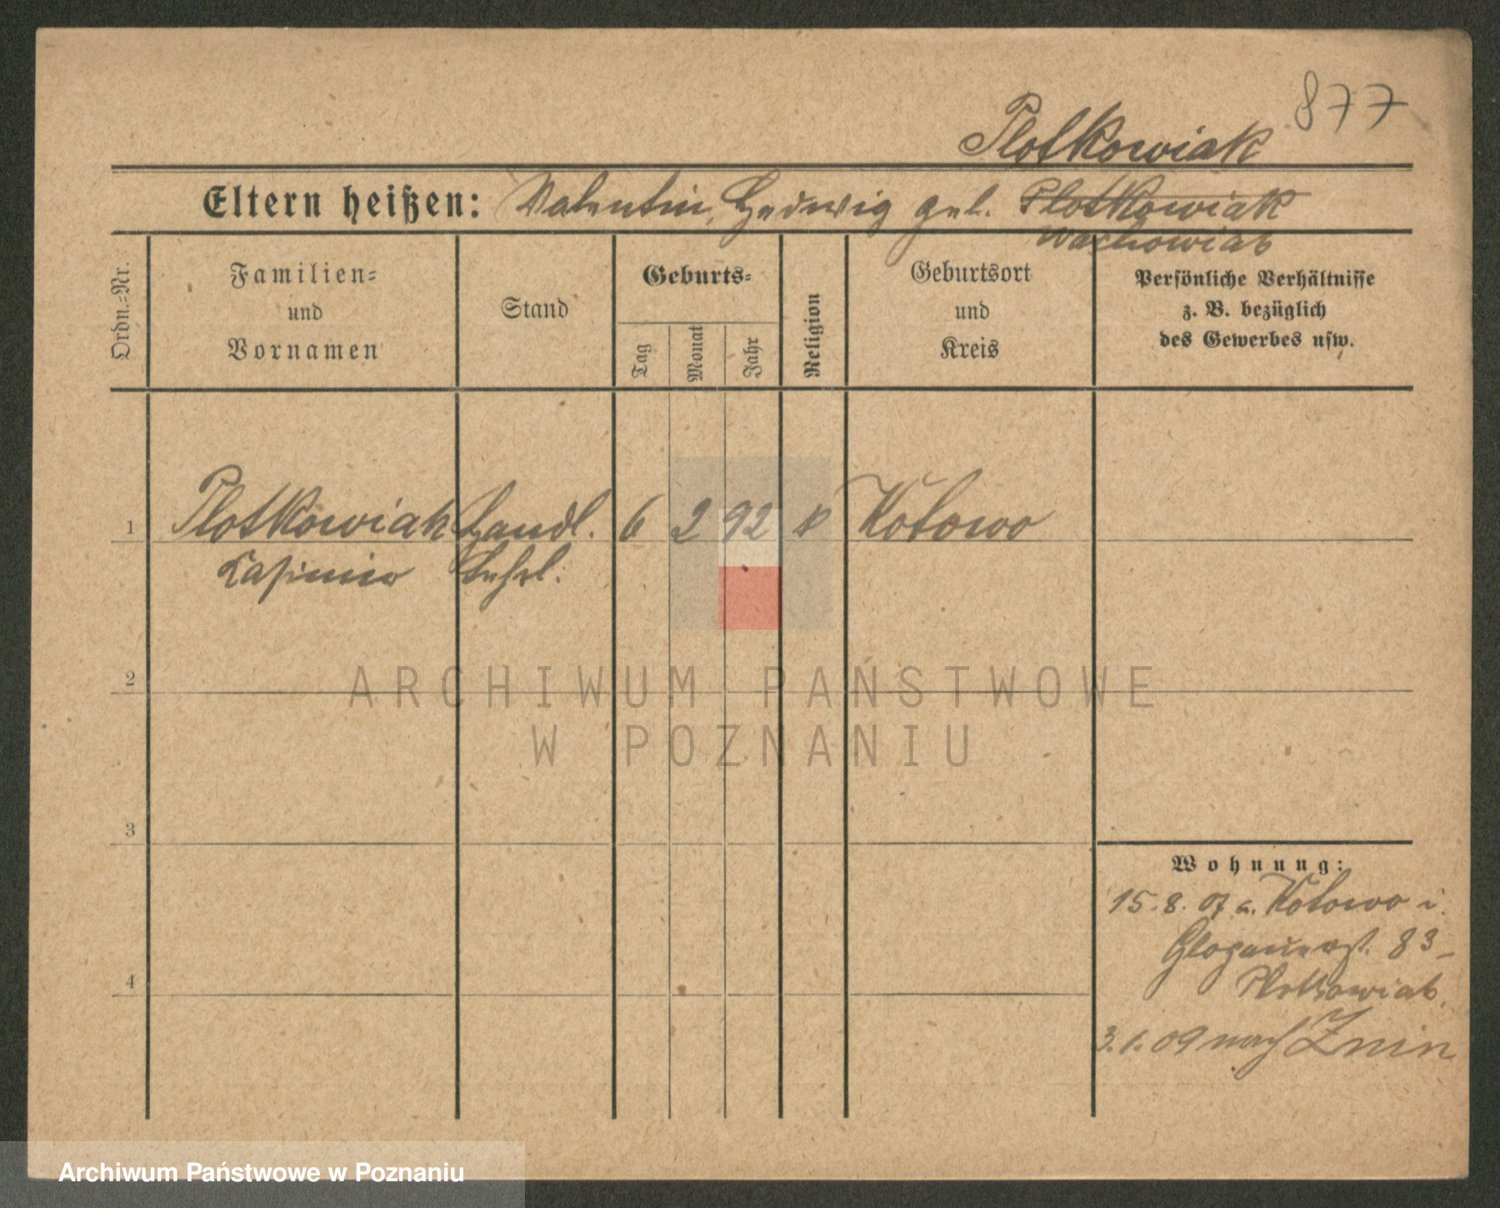 877
Plotkowiak
Eltern heißen: Valentin, Hedwig geb. Plotkowiak
Wachowiak
Ordn.-Nr.
Familien-
und
Vornamen
Stand
Geburts-
Tag
Monat
Jahr
Religion
Geburtsort
und
Kreis
Persönliche Verhältnisse
z. B. bezüglich
des Gewerbes usw.
1 Plotkowiak Handl. 6 2 92 k Kotowo
Kasimir Lehrl.
2
3
4
Wohnung:
15.8.07 a. Kotowo i.
Glogauerst. 83
Plotkowiak
3.1.09 nach Znin
ARCHIWUM PAŃSTWOWE
W POZNANIU
Archiwum Państwowe w Poznaniu